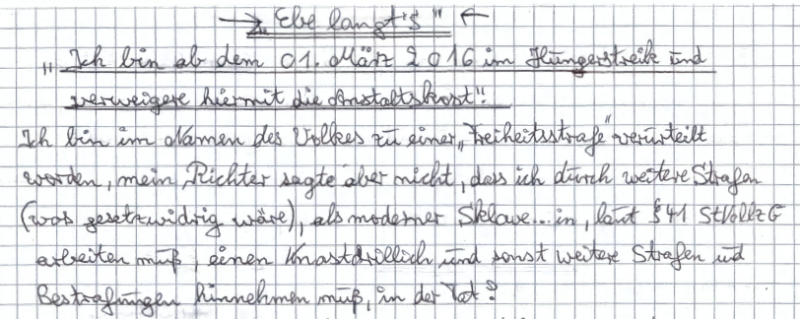 → „Ebe langt's" ←
„Ich bin ab dem 01. März 2016 im Hungerstreik und
verweigere hiermit die Anstaltskost"!
Ich bin im Namen des Volkes zu einer „Freiheitsstrafe" verurteilt
worden, mein Richter sagte aber nicht, dass ich durch weitere Strafen
(was gesetzwidrig wäre), als moderner Sklave...in, laut § 41 StVollzG
arbeiten muß, einen Knastdrillich und sonst weitere Strafen und
Bestrafungen hinnehmen muß, in der Tat?